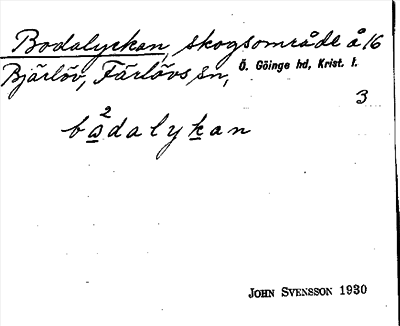 Bodalyckan, skogsområde å 16
Bjärlöv, Färlövs sn, Ö. Göinge hd, Krist. l.
3
2
bodalykan
JOHN SVENSSON 1930